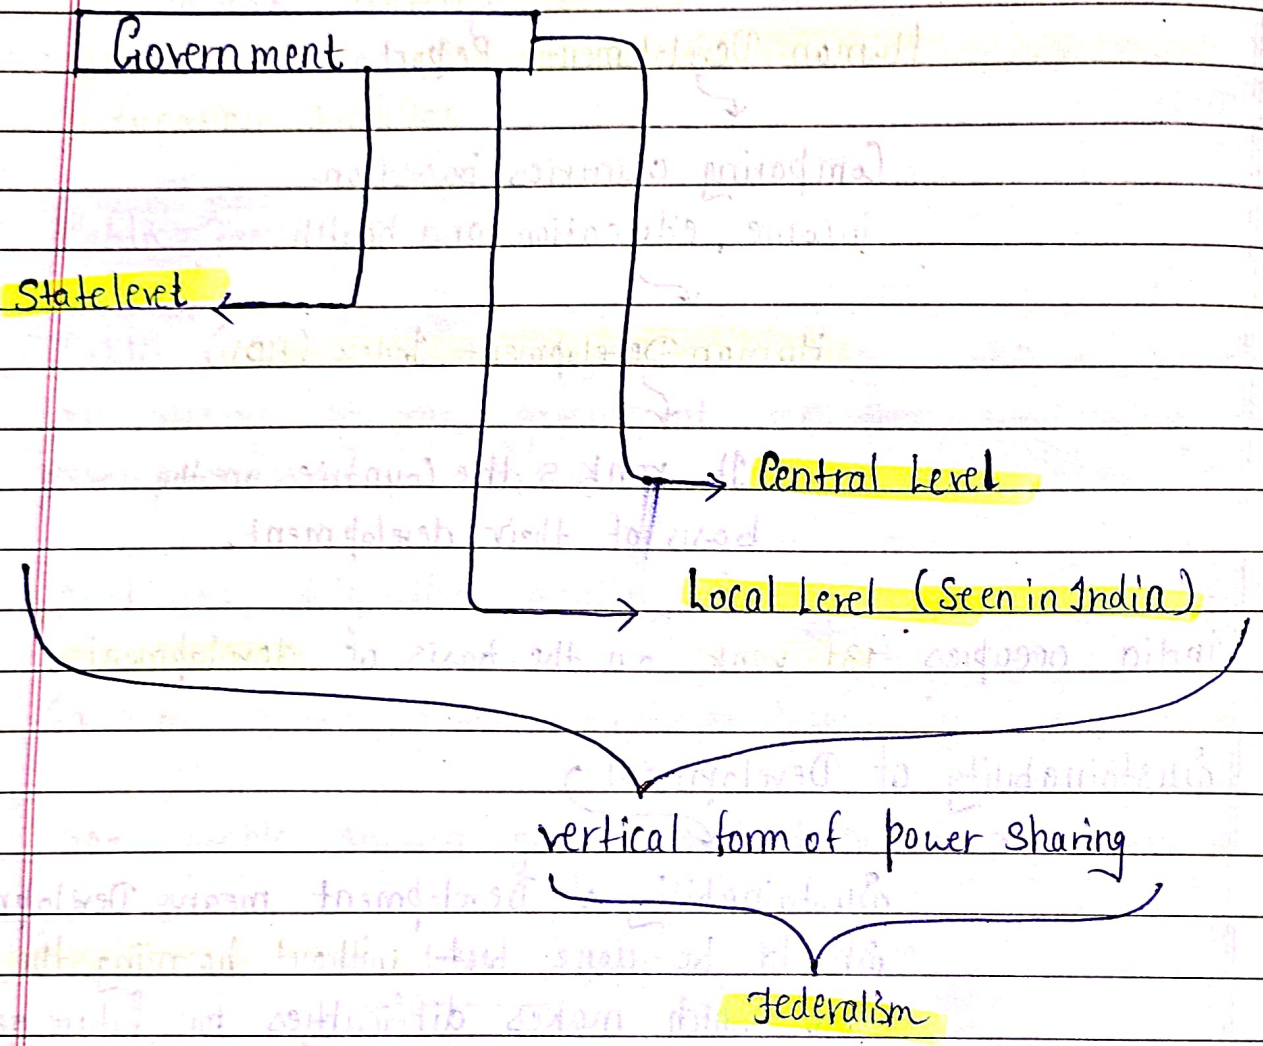 Government
State level
Central Level
Local Level (Seen in India)
vertical form of power sharing
Federalism